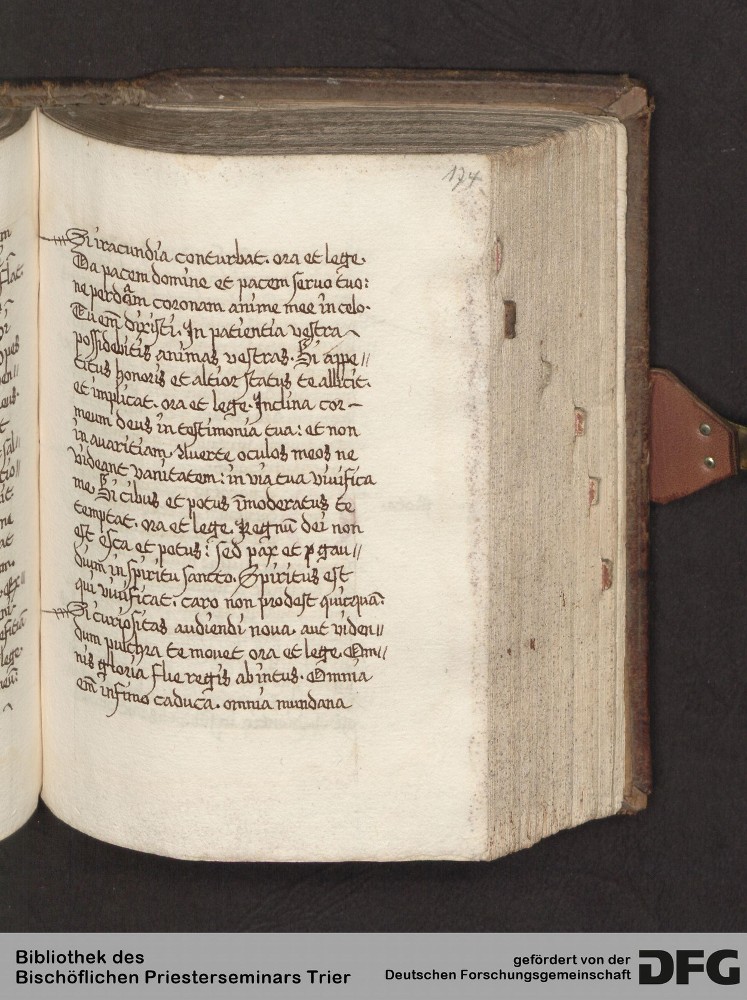 174
Si iracundia conturbat. ora et lege.
Da pacem domine et pacem seruo tuo:
ne perdam coronam anime mee in celo.
Tu em̄ dixisti. In patientia vestra
possidebitis animas vestras. Si appe//
titus honoris et altior status te allicit.
et implicat. ora et lege. Inclina cor
meum deus in testimonia tua: et non
in auaritiam. Auerte oculos meos ne
videant vanitatem: in via tua viuifica
me. Si cibus et potus īmoderatus te
temptat. ora et lege. Regnū dei non
est esca et potus: sed pax et gau//
dium in spiritu sancto. Spiritus est
qui viuificat. caro non prodest quicquā.
Si curiositas audiendi noua. aut viden//
dum pulchra te mouet ora et lege. Om//
nis gloria filie regis ab intus. Omnia
em̄ infimo caduca. omnia mundana
Bibliothek des
Bischöflichen Priesterseminars Trier
gefördert von der
Deutschen Forschungsgemeinschaft
DFG